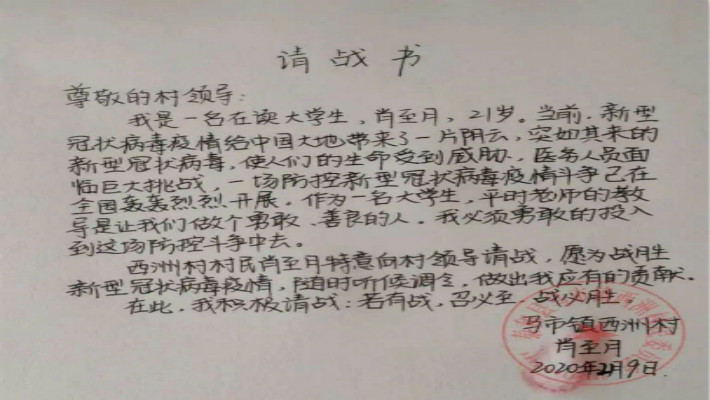 请战书
尊敬的村领导:
我是一名在读大学生，肖至月，21岁。当前，新型
冠状病毒疫情给中国大地带来了一片阴云，突如其来的
新型冠状病毒，使人们的生命受到威胁，医务人员面
临巨大挑战，一场防控新型冠状病毒疫情斗争已在
全国轰轰烈烈开展。作为一名大学生，平时老师的教
导是让我们做个勇敢、善良的人。我必须勇敢的投入
到这场防控斗争中去。
西洲村村民肖至月特意向村领导请战，愿为战胜
新型冠状病毒疫情，随时听候调令，做出我应有的贡献。
在此，我积极请战：若有战，召必至，战必胜
马市镇西洲村
肖至月
2020年2月9日.